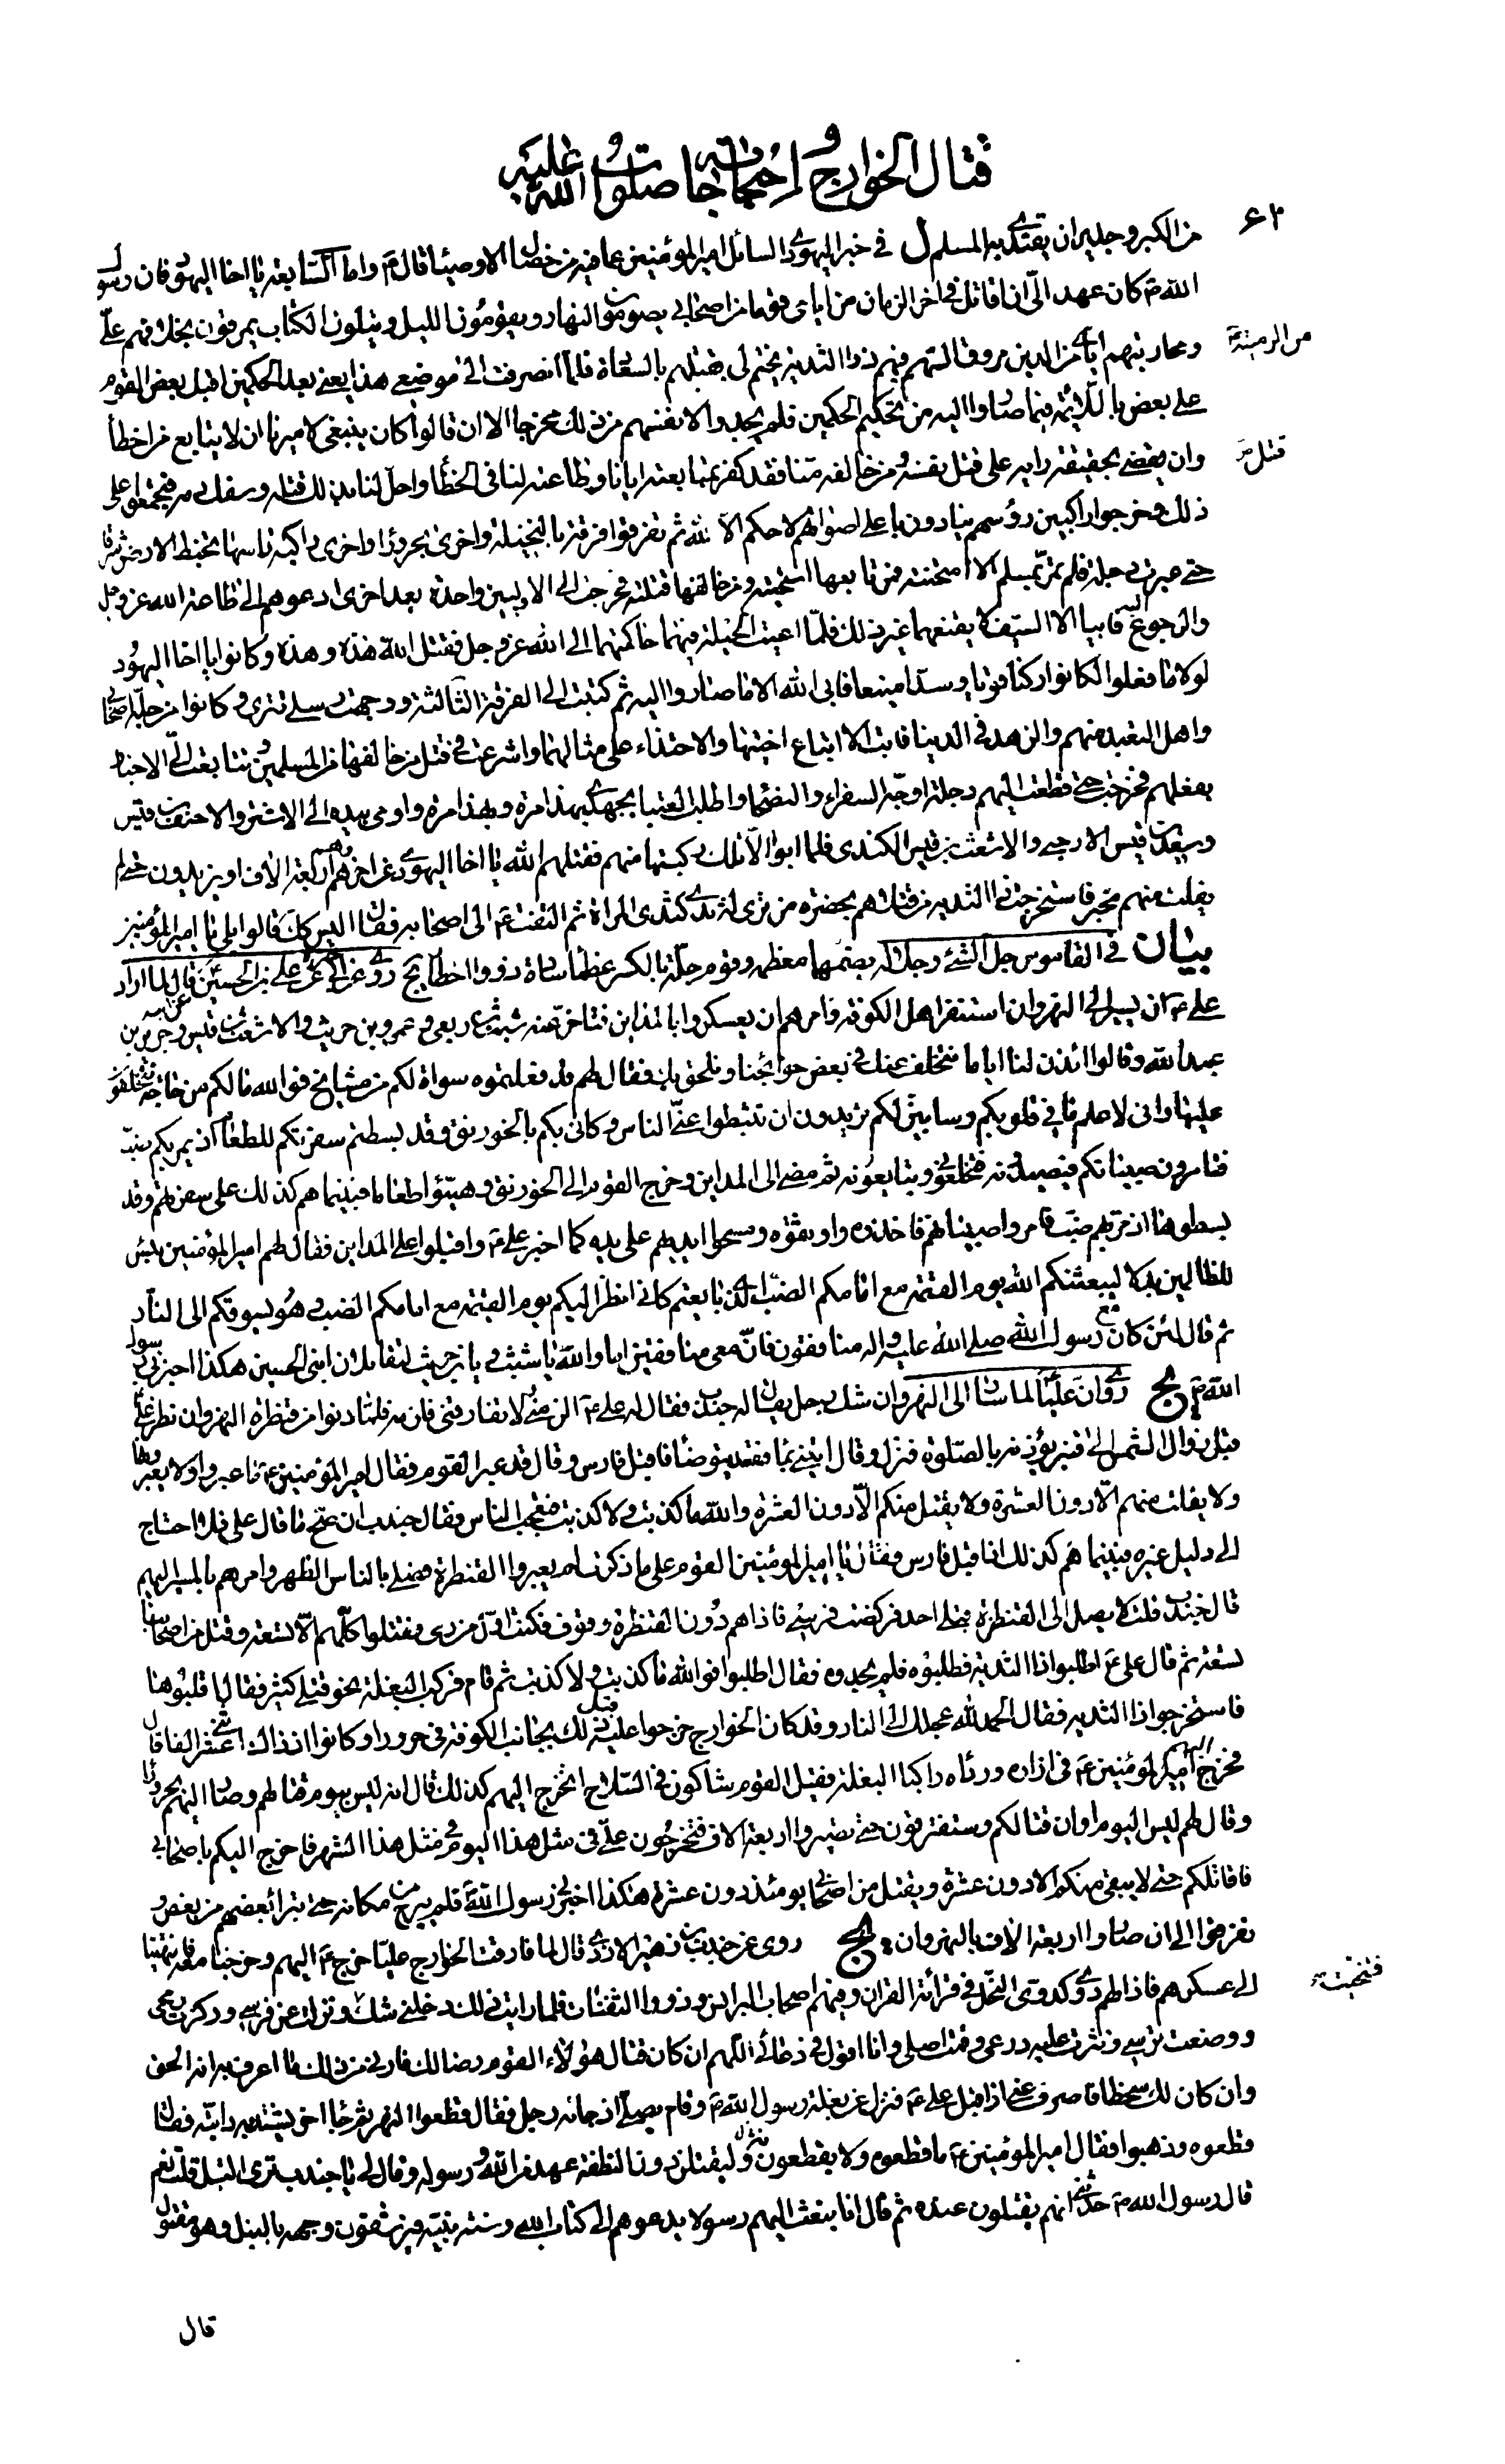 قتال الخوارج و احتجاجاته صلوات الله عليه
۶۲
من الكبر وجدير ان يقتدى به المسلم ل في خبر اليهودى السائل امير المؤمنين عما فيه من خصال الاوصياء قال ع واما السابعة يا اخا اليهود فان رسول
الله ص كان عهد الىّ ان اقاتل فى اخر الزمان من ايامى قوما من اصحابى يصومون النهار ويقومون الليل ويتلون الكتاب يمرقون بخلافهم علىّ
ومحاربتهم اياى من الدين مروق السهم فيهم ذو الثدية يختم لى بقتلهم بالسعادة فلما انصرفت الى موضعى هذا يعنى بعد الحكمين اقبل بعض القوم
من الرمية
على بعض باللائمة فيما صاروا اليه من تحكيم الحكمين فلم يجدوا لانفسهم من ذلك مخرجا الا ان قالوا كان ينبغى لاميرنا ان لا يتابع من اخطأ
وان يقضى بحقيقة رايه على قتل نفسه و من خالفه منا فقد كفر بمتابعته ايانا وطاعته لنا فى الخطأ واحل لنا بذلك قتله وسفك دمه فتجمعوا على
قتل
ذلك وخرجوا راكبين رؤسهم ينادون باعلى اصواتهم لا حكم الا لله ثم تفرقوا فرقة بالنخيلة واخرى بحروراء واخرى راكبة راسها تخبط الارض شرقا
حتى عبرت دجلة فلم تمر بمسلم الا امتحنته فمن تابعها استحيته ومن خالفها قتلته فخرجت الى الاوليين واحدة بعد اخرى ادعوهم الى طاعة الله عز وجل
والرجوع اليه فابيا الا السيف لا يقنعهما غير ذلك فلما اعيت الحيلة فيهما حاكمتهما الى الله عز وجل فقتل الله هذه وهذه وكانوا يا اخا اليهود
لولا ما فعلوا لكانوا ركنا قويا وسدا منيعا فابى الله الا ما صاروا اليه ثم كتبت الى الفرقة الثالثة ووجهت رسلى تترى وكانوا من جلة اصحابى
واهل التعبد منهم والزهد فى الدنيا فابت الا اتباع اختيها والاحتذاء على مثالهما واشرعت فى قتل من خالفها من المسلمين وتتابعت الىّ الاخبار
بفعلهم فخرجت حتى قطعت اليهم دجلة اوجّه السفراء والنصحاء واطلب العتبى بجهدى بهذا مرة وبهذا مرة واومى بيده الى الاشتر والاحنف بن قيس
وسعيد بن قيس الارحبى والاشعث بن قيس الكندى فلما ابوا الا تلك ركبتها منهم فقتلهم الله يا اخا اليهود عن اخرهم وهم اربعة الاف او يزيدون حتى لم
يفلت منهم مخبر فاستخرجت ذا الثدية من قتلاهم بحضرة من ترى له ثدى كثدى المراة ثم التفت ع الى اصحابه فقال اليس كذلك قالوا بلى يا امير المؤمنين
بيان فى القاموس جل الشئ وجلاله بضمهما معظمه وقوم جلة بالكسر عظماء سادة ذووا اخطار يج روى عن ابى حمزة عن على بن الحسين ع قال لما اراد
على ع ان يسير الى النهروان استنفر اهل الكوفة وامرهم ان يعسكروا بالمداين فتاخر عنه شبث بن ربعى وعمرو بن حريث والاشعث بن قيس وجرير بن
عبد الله وقالوا ائذن لنا اياما نتخلف عنك فى بعض حوائجنا ونلحق بك فقال لهم قد فعلتموه سواة لكم من مشايخ فوالله ما لكم من حاجة تتخلفون
عليها وانى لاعلم ما فى قلوبكم وسابين لكم تريدون ان تثبطوا عنى الناس وكانى بكم بالخورنق وقد بسطتم سفرتكم للطعام اذ يمر بكم ضبّ
فتامرون صبيانكم فيصيدونه فتخلعونى وتبايعونه ثم مضى الى المداين وخرج القوم الى الخورنق وهيئوا طعاما فبينما هم كذلك على سفرتهم وقد
بسطوها اذ مر بهم ضب فامروا صبيانهم فاخذوه واوثقوه ومسحوا ايديهم على يده كما اخبر على ع واقبلوا على المداين فقال لهم امير المؤمنين بئس
للظالمين بدلا ليبعثنكم الله يوم القيمة مع امامكم الضب الذى بايعتم كانى انظر اليكم يوم القيمة مع امامكم الضب وهو يسوقكم الى النار
ثم قال لئن كان مع رسول الله صلى الله عليه و اله منافقون فان معى منافقين اما والله يا شبث ويا بن حريث لتقاتلان ابنى الحسين هكذا اخبرنى رسول
الله ص يج روى ان عليا ع لما سار الى النهروان شك رجل يقال له جندب فقال له على ع الزمنى ولا تفارقنى فلزمه فلما دنوا من قنطرة النهروان نظر على ع
قبل زوال الشمس الى قنبر يؤذنه بالصلوة فنزل وقال ايتنى بماء فقعد يتوضأ فاقبل فارس وقال قد عبر القوم فقال امير المؤمنين ع ما عبروا ولا يعبرونها
ولا يفلت منهم الا دون العشرة ولا يقتل منكم الا دون العشرة والله ما كذبت ولا كذبت فتعجب الناس فقال جندب ان صح ما قال على فلا احتاج
الى دليل غيره فبينما هم كذلك اذا قبل فارس فقال يا امير المؤمنين القوم على ما ذكرت لم يعبروا القنطرة فصلى بالناس الظهر وامرهم بالمسير اليهم
قال جندب قلت لا يصل الى القنطرة قبلى احد فركضت فرسى فاذا هم دون القنطرة وقوف فكنت اول من رمى فقتلوا كلهم الا تسعة وقتل من اصحابنا
تسعة ثم قال على ع اطلبوا ذا الثدية فطلبوه فلم يجدوه فقال اطلبوا فوالله ما كذبت ولا كذبت ثم قام فركب البغلة نحو قتلى كثير فقال اقلبوها
فاستخرجوا ذا الثدية فقال الحمد لله عجلك الى النار وقد كان الخوارج خرجوا عليه قبل ذلك بجانب الكوفة فى حروراء وكانوا اذ ذاك اثنى عشر الفا قال
فخرج اليهم امير المؤمنين ع فى ازاره وردائه راكبا البغلة فقيل القوم شاكون فى السلاح اتخرج اليهم كذلك قال انه ليس بيوم قتالهم وصار اليهم بحروراء
وقال لهم ليس اليوم اوان قتالكم وستفترقون حتى تصيروا اربعة الاف فتخرجون علىّ فى مثل هذا اليوم فى مثل هذا الشهر فاخرج اليكم باصحابى
فاقاتلكم حتى لا يبقى منكم الا دون عشرة ويقتل من اصحابى يومئذ دون عشرة هكذا اخبرنى رسول الله ص فلم يبرح من مكانه حتى تبرا بعضهم من بعض و
تفرقوا الى ان صاروا اربعة الاف بالنهروان يج روى عن جندب بن زهير الازدى قال لما فارقت الخوارج عليّا خرج ع اليهم وخرجنا معه فانتهينا
الى عسكرهم فاذا لهم دوى كدوى النحل فى قرائة القران وفيهم اصحاب البرانس وذووا الثفنات فلما رايت ذلك دخلنى شك ونزلت عن فرسى وركزت رمحى
فتنحيت
ووضعت ترسى ونثرت عليه درعى وقمت اصلى وانا اقول فى دعائى اللهم ان كان قتال هؤلاء القوم رضا لك فارنى من ذلك ما اعرف به انه الحق
وان كان لك سخطا فاصرف عنى اذ اقبل على ع فنزل عن بغلة رسول الله ص وقام يصلى اذ جائه رجل فقال قطعوا النهر ثم جاء اخر يشتد به دابته فقال
قطعوه وذهبوا فقال امير المؤمنين ع ما قطعوه ولا يقطعونه وليقتلن دون النطفة عهد من الله و رسوله وقال لى يا جندب ترى التل قلت نعم
قال رسول الله ص حدثنى انهم يقتلون عنده ثم قال انا نبعث اليهم رسولا يدعوهم الى كتاب الله وسنة نبيه فيرشقون وجهه بالنبل وهو مقتول
قال